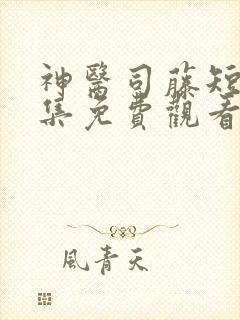 神醫司藤短
集免費觀看
風青天